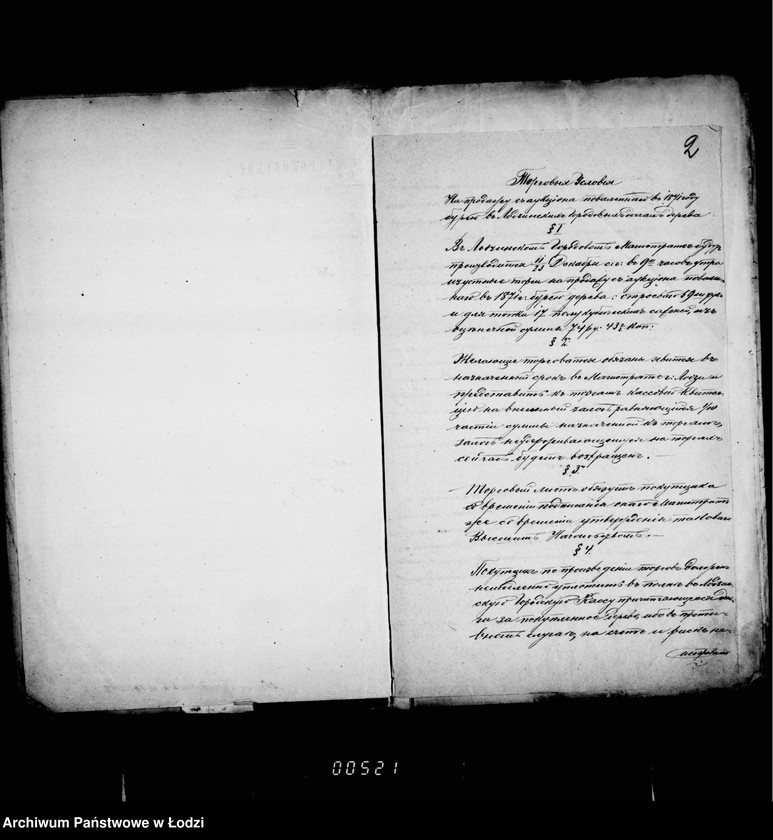 2
Торговыя Условыя
На продажу съ аукціона поваленнаго въ 1871 году
бурею въ Лодзинскихъ Городовыхъ лесахъ дерева.
§ 1
Въ Лодзинскомъ Городовомъ Магистрате будутъ
производится 4/13 Декабря с.г. въ 9ть часовъ утра
изустные торги на продажу съ аукціона повален-
наго въ 1871 г. бурею дерева:
и для топки 17 полукубическихъ саженей отъ
оценочной суммы 74 ру. 43½ коп.
§ 2
Желающіе торговатся обязаны явится въ
назначенный срокъ въ Магистратъ г. Лодзи и
представить къ торгамъ кассовой квитан-
цію на внесенный залогъ равняющійся 1/10
части суммы назначенной къ торгамъ,
залогъ неудерживающемуся на торгахъ
сейчасъ будетъ возвращенъ. —
§ 3
Торговый листъ обязуетъ покупщика
со времени подписанія онаго а Магистратъ
же со времени утвержденія таковаго
Высшимъ Начальствомъ. —
§ 4.
Покупщикъ по произведеніи торговъ долженъ
немедленно уплотить въ полне въ Лодзин-
скую Городскую Кассу причитающееся день-
ги за покупленное дерево, ибо въ против-
номъ случае, на счетъ и рискъ не-
00521
Archiwum Państwowe w Łodzi